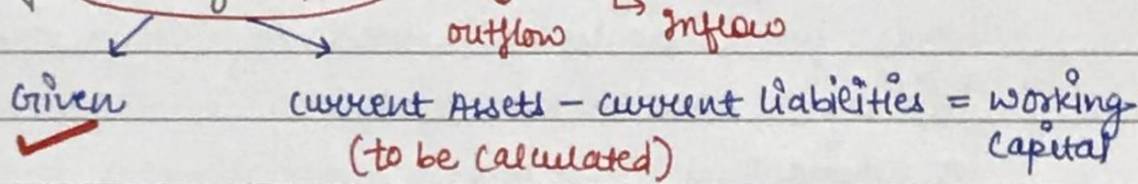 outflow → Inflow
Given current Assets - current liabilities = working
(to be calculated) capital